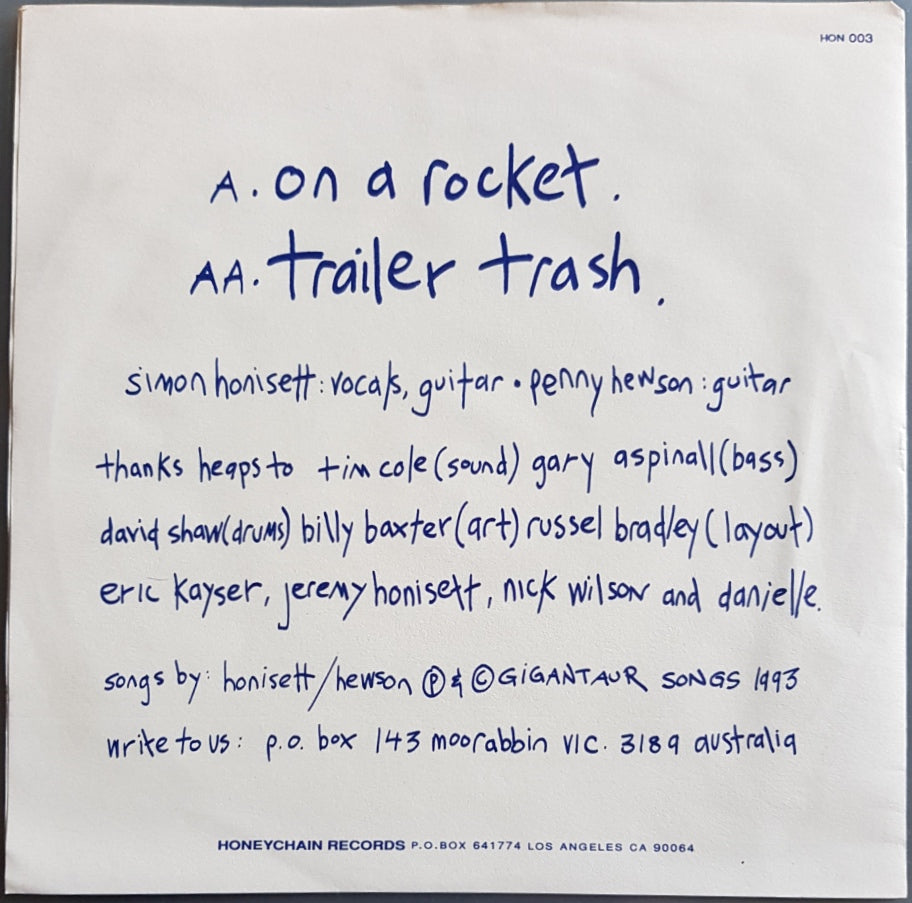 HON 003
A. on a rocket.
AA. trailer trash.
simon honisett: vocals, guitar • penny hewson: guitar
thanks heaps to tim cole (sound) gary aspinall (bass)
david shaw (drums) billy baxter (art) russel bradley (layout)
eric kayser, jeremy honisett, nick wilson and danielle.
songs by: honisett/hewson ℗ & © GIGANTAUR SONGS 1993
write to us: p.o. box 143 moorabbin VIC. 3189 australia
HONEYCHAIN RECORDS P.O.BOX 641774 LOS ANGELES CA 90064